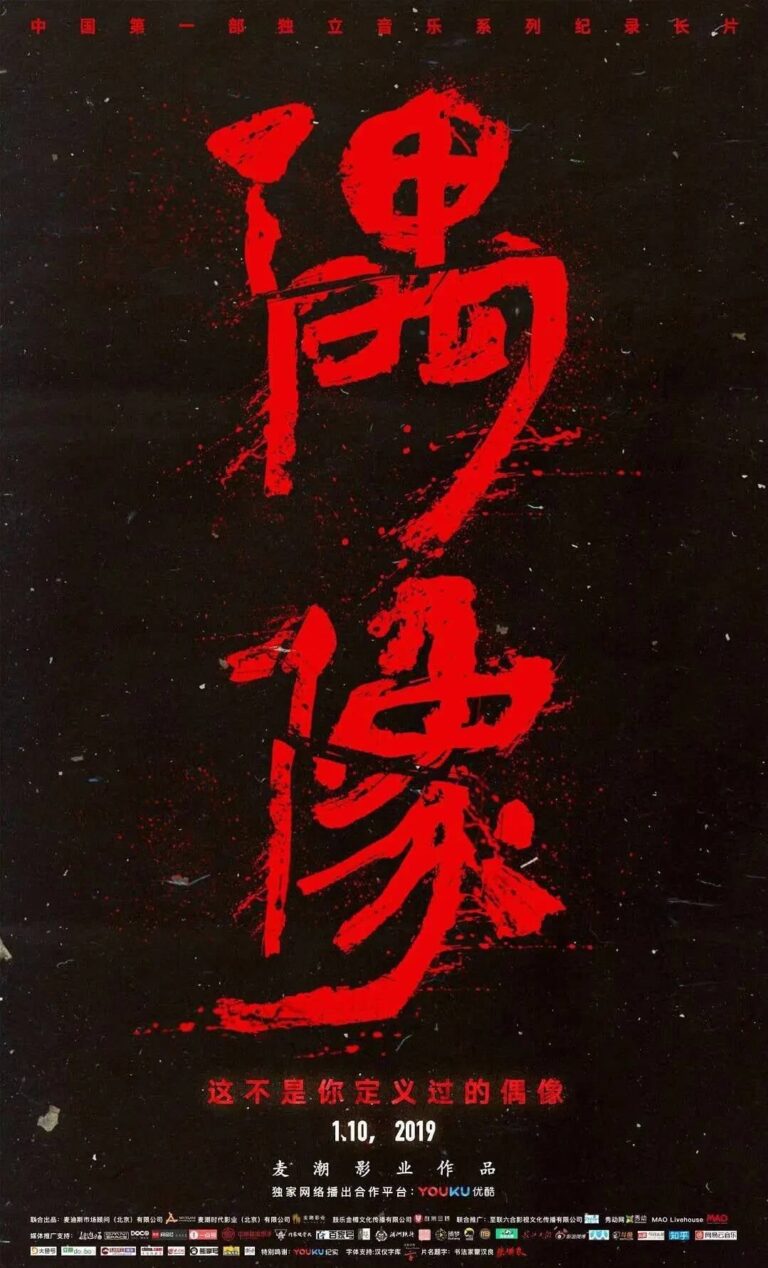 中国第一部独立音乐系列纪录长片
偶
像
这不是你定义过的偶像
1.10, 2019
麦潮影业作品
独家网络播出合作平台：YOUKU优酷
联合出品：麦迪斯市场顾问（北京）有限公司 麦潮时代影业（北京）有限公司 鼓乐金樽文化传播有限公司 联合推广：至联六合影视文化传播有限公司 秀动网 秀动 MAO Livehouse MAO
媒体推广支持： DOCO 一点号 百家号 人人 知乎 网易云音乐
大鱼号 do.bo 熊掌号 特别鸣谢：YOUKU纪实 字体支持：汉仪字库 片名题字：书法家董汉良